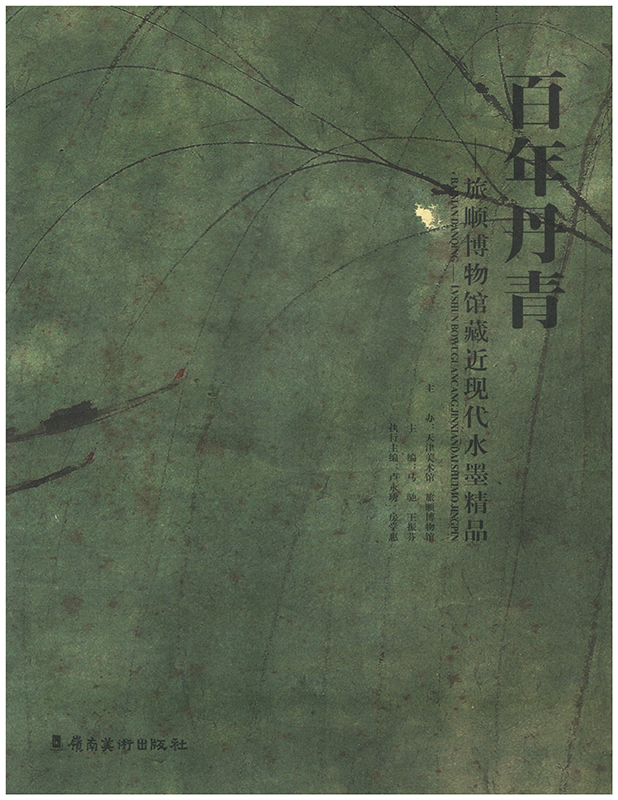 百年丹青
旅顺博物馆藏近现代水墨精品
·BAINIANDANQING — LVSHUN BOWUGUANCANG JINXIANDAI SHUIMO JINGPIN
主 办：天津美术馆 旅顺博物馆
主 编：马 驰 王振芬
执行主编：卢永琇 房学惠
嶺南美術出版社